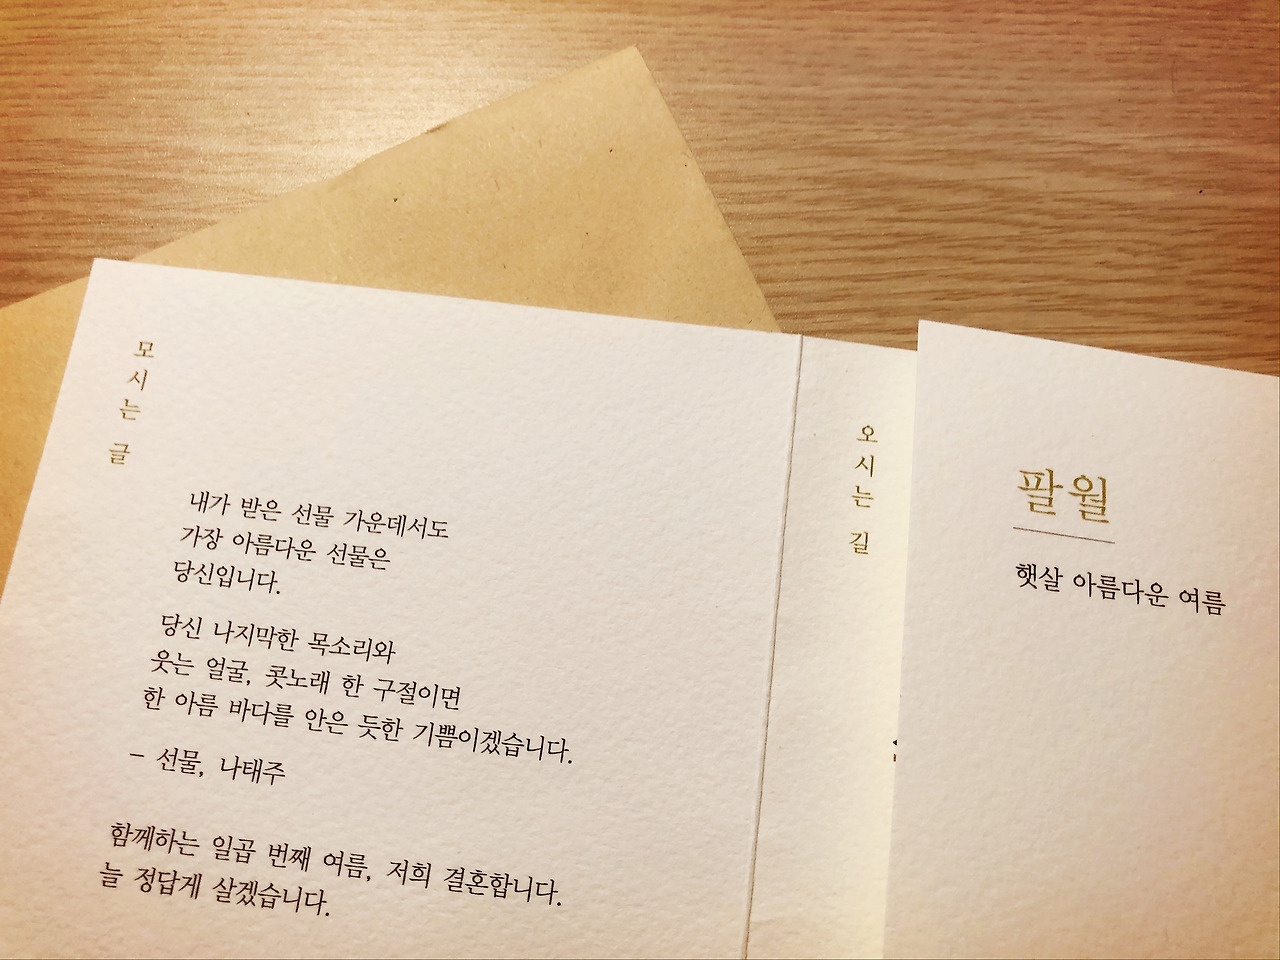 모시는 글
내가 받은 선물 가운데서도
가장 아름다운 선물은
당신입니다.
당신 나지막한 목소리와
웃는 얼굴, 콧노래 한 구절이면
한 아름 바다를 안은 듯한 기쁨이겠습니다.
- 선물, 나태주
함께하는 일곱 번째 여름, 저희 결혼합니다.
늘 정답게 살겠습니다.
오시는 길
팔월
햇살 아름다운 여름